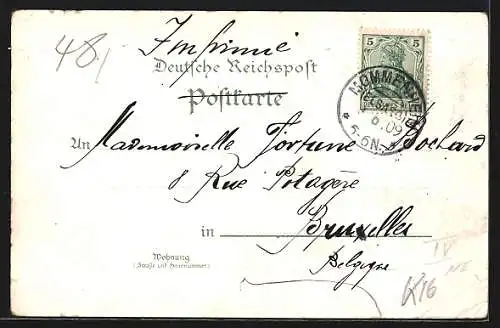 48,
Imprimé
5 5
Deutsche Reichspost
Postkarte
(ELSASS)
6 09
5-6N.
An Mademoiselle Fortune Bochard
8 Rue Potagère
in Bruxelles
Belgique
Wohnung
(Straße und Hausnummer)
IV
K16